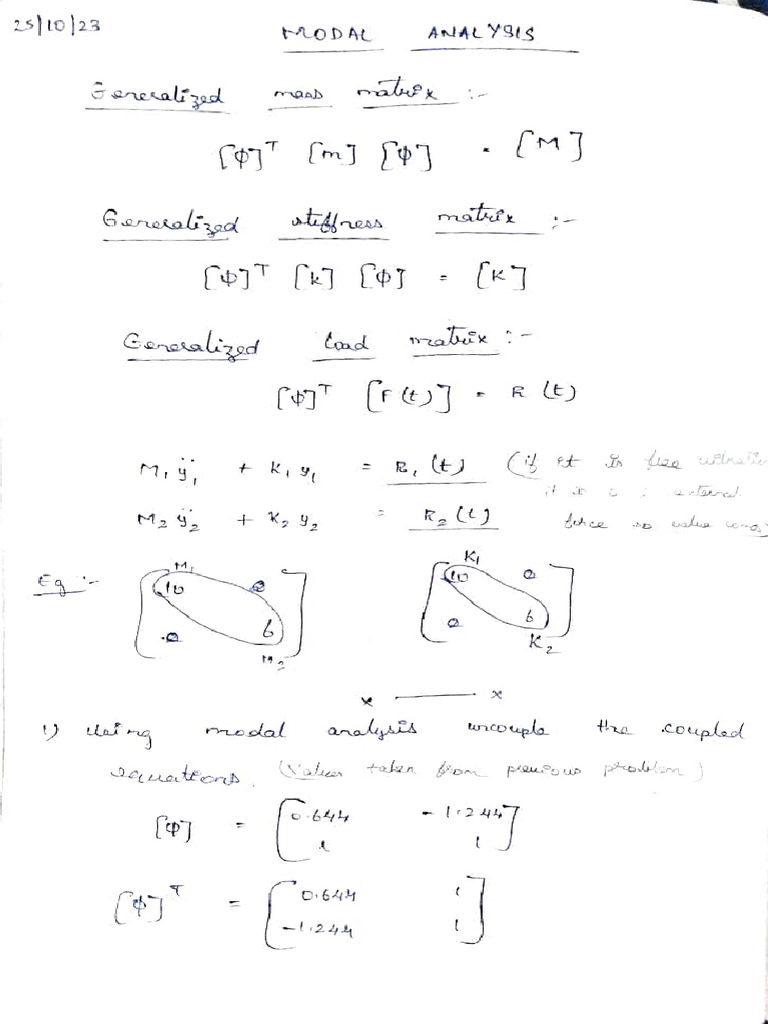 25/10/23
MODAL ANALYSIS
Generalized mass matrix :-
[φ]ᵀ [m] [φ] = [M]
Generalized stiffness matrix :-
[φ]ᵀ [k] [φ] = [K]
Generalized load matrix :-
[φ]ᵀ [F(t)] = R(t)
M₁ÿ₁ + K₁y₁ = R₁(t) (if it is free vibration
it is external
M₂ÿ₂ + K₂y₂ = R₂(t) force so value
M₁ K₁
Eg :- [10 0 [10 0
0 6] 0 6]
M₂ K₂
x — x
1) Using modal analysis uncouple the coupled
equations. (Values taken from previous problem)
[φ] = [0.644 -1.244
1 1]
[φ]ᵀ = [0.644 1
-1.244 1]